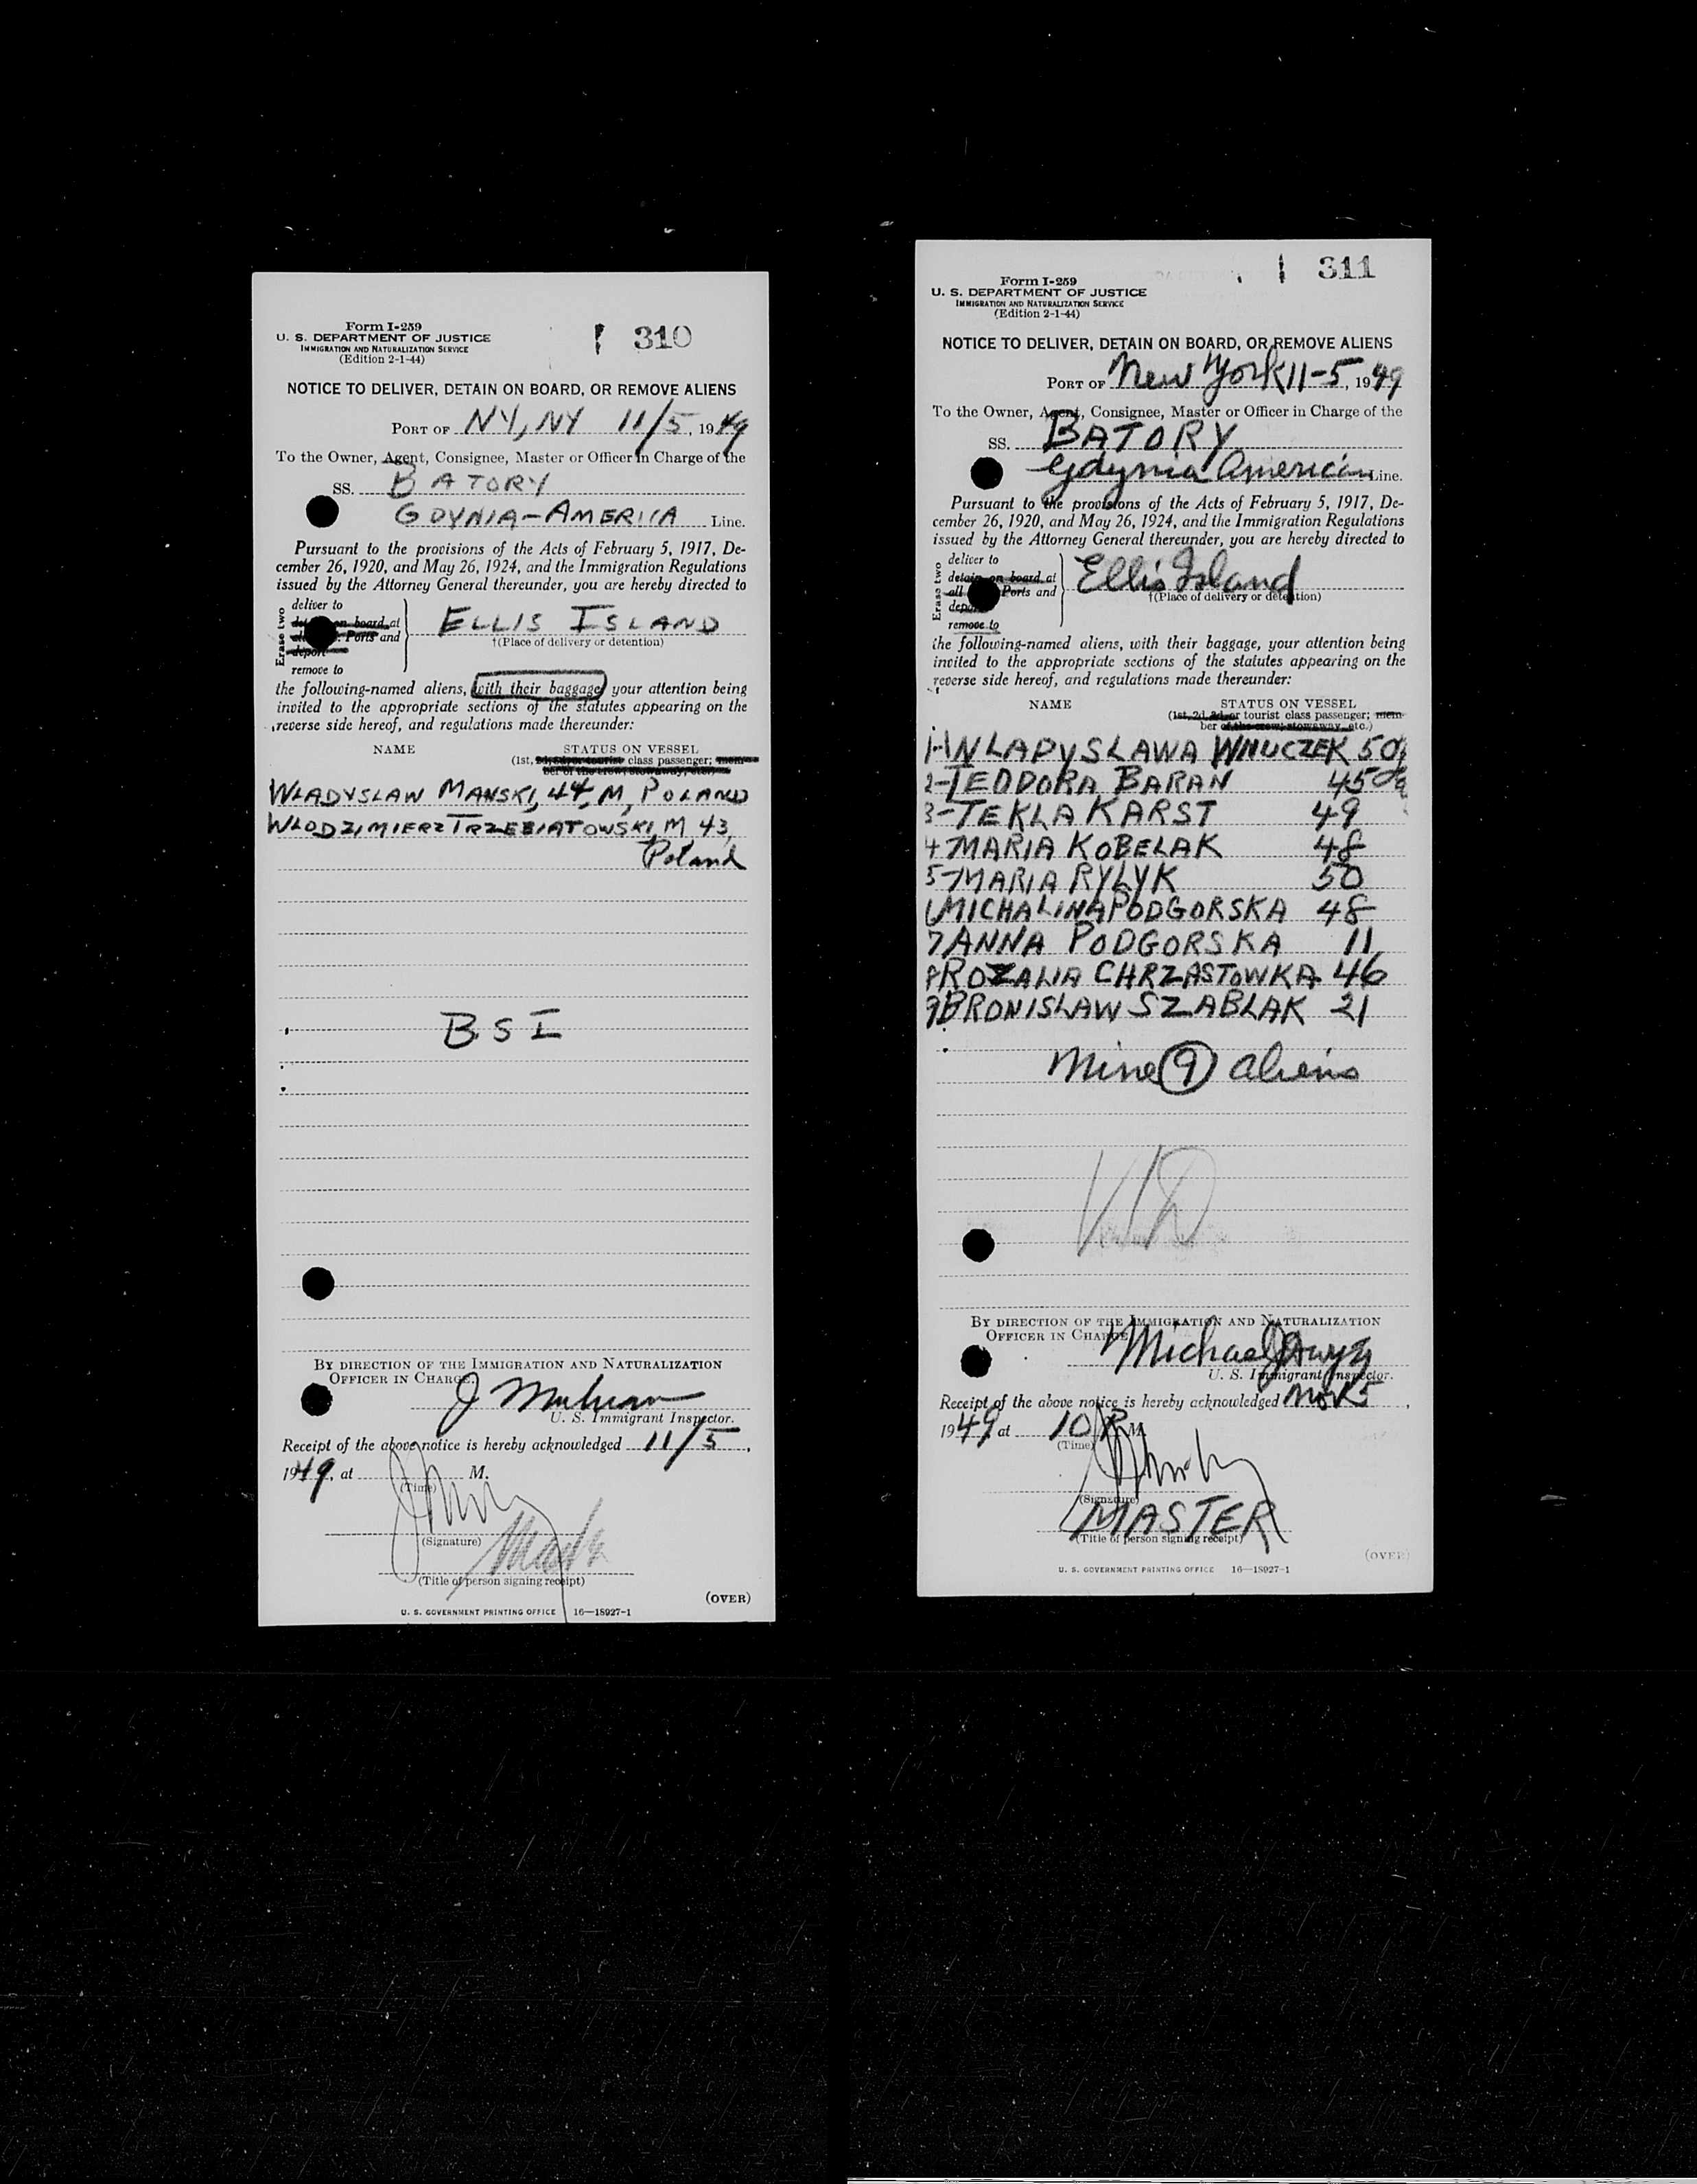 Form I-259
U. S. DEPARTMENT OF JUSTICE
IMMIGRATION AND NATURALIZATION SERVICE
(Edition 2-1-44)
310
NOTICE TO DELIVER, DETAIN ON BOARD, OR REMOVE ALIENS
PORT OF NY, NY 11/5, 1949
To the Owner, Agent, Consignee, Master or Officer in Charge of the
SS. BATORY
GDYNIA-AMERICA Line.
Pursuant to the provisions of the Acts of February 5, 1917, De-
cember 26, 1920, and May 26, 1924, and the Immigration Regulations
issued by the Attorney General thereunder, you are hereby directed to
Erase two
deliver to
on board at
Ports and
deport
remove to
ELLIS ISLAND
†(Place of delivery or detention)
the following-named aliens, with their baggage, your attention being
invited to the appropriate sections of the statutes appearing on the
reverse side hereof, and regulations made thereunder:
NAME STATUS ON VESSEL
(1st, 2d, 3d, or tourist class passenger; mem-
ber of the crew; stowaway, etc.)
WLADYSLAW MANSKI, 44, M, POLAND
WLODZIMIERZ TRZEBIATOWSKI, M 43,
Poland
BSI
BY DIRECTION OF THE IMMIGRATION AND NATURALIZATION
OFFICER IN CHARGE.
J
U. S. Immigrant Inspector.
Receipt of the above notice is hereby acknowledged 11/5,
1949, at M.
(Time)
(Signature)
(Title of person signing receipt)
(OVER)
U. S. GOVERNMENT PRINTING OFFICE 16—18927-1
Form I-259
U. S. DEPARTMENT OF JUSTICE
IMMIGRATION AND NATURALIZATION SERVICE
(Edition 2-1-44)
311
NOTICE TO DELIVER, DETAIN ON BOARD, OR REMOVE ALIENS
PORT OF New York 11-5, 1949
To the Owner, Agent, Consignee, Master or Officer in Charge of the
SS. BATORY
Gdynia American Line.
Pursuant to the provisions of the Acts of February 5, 1917, De-
cember 26, 1920, and May 26, 1924, and the Immigration Regulations
issued by the Attorney General thereunder, you are hereby directed to
Erase two
deliver to
detain on board at
all Ports and
deport
remove to
Ellis Island
†(Place of delivery or detention)
the following-named aliens, with their baggage, your attention being
invited to the appropriate sections of the statutes appearing on the
reverse side hereof, and regulations made thereunder:
NAME STATUS ON VESSEL
(1st, 2d, 3d, or tourist class passenger; mem-
ber of the crew; stowaway, etc.)
1-WLADYSLAWA WNUCZEK 50
2-TEODORA BARAN 45
3-TEKLA KARST 49
4 MARIA KOBELAK 48
5-MARIA RYLYK 50
6 MICHALINA PODGORSKA 48
7 ANNA PODGORSKA 11
8 ROZALIA CHRZASTOWKA 46
9 BRONISLAW SZABLAK 21
Nine (9) aliens
BY DIRECTION OF THE IMMIGRATION AND NATURALIZATION
OFFICER IN CHARGE.
Michael
U. S. Immigrant Inspector.
Receipt of the above notice is hereby acknowledged Nov 5,
1949, at 10 M.
(Time)
(Signature)
MASTER
(Title of person signing receipt)
(OVER)
U. S. GOVERNMENT PRINTING OFFICE 16—18927-1